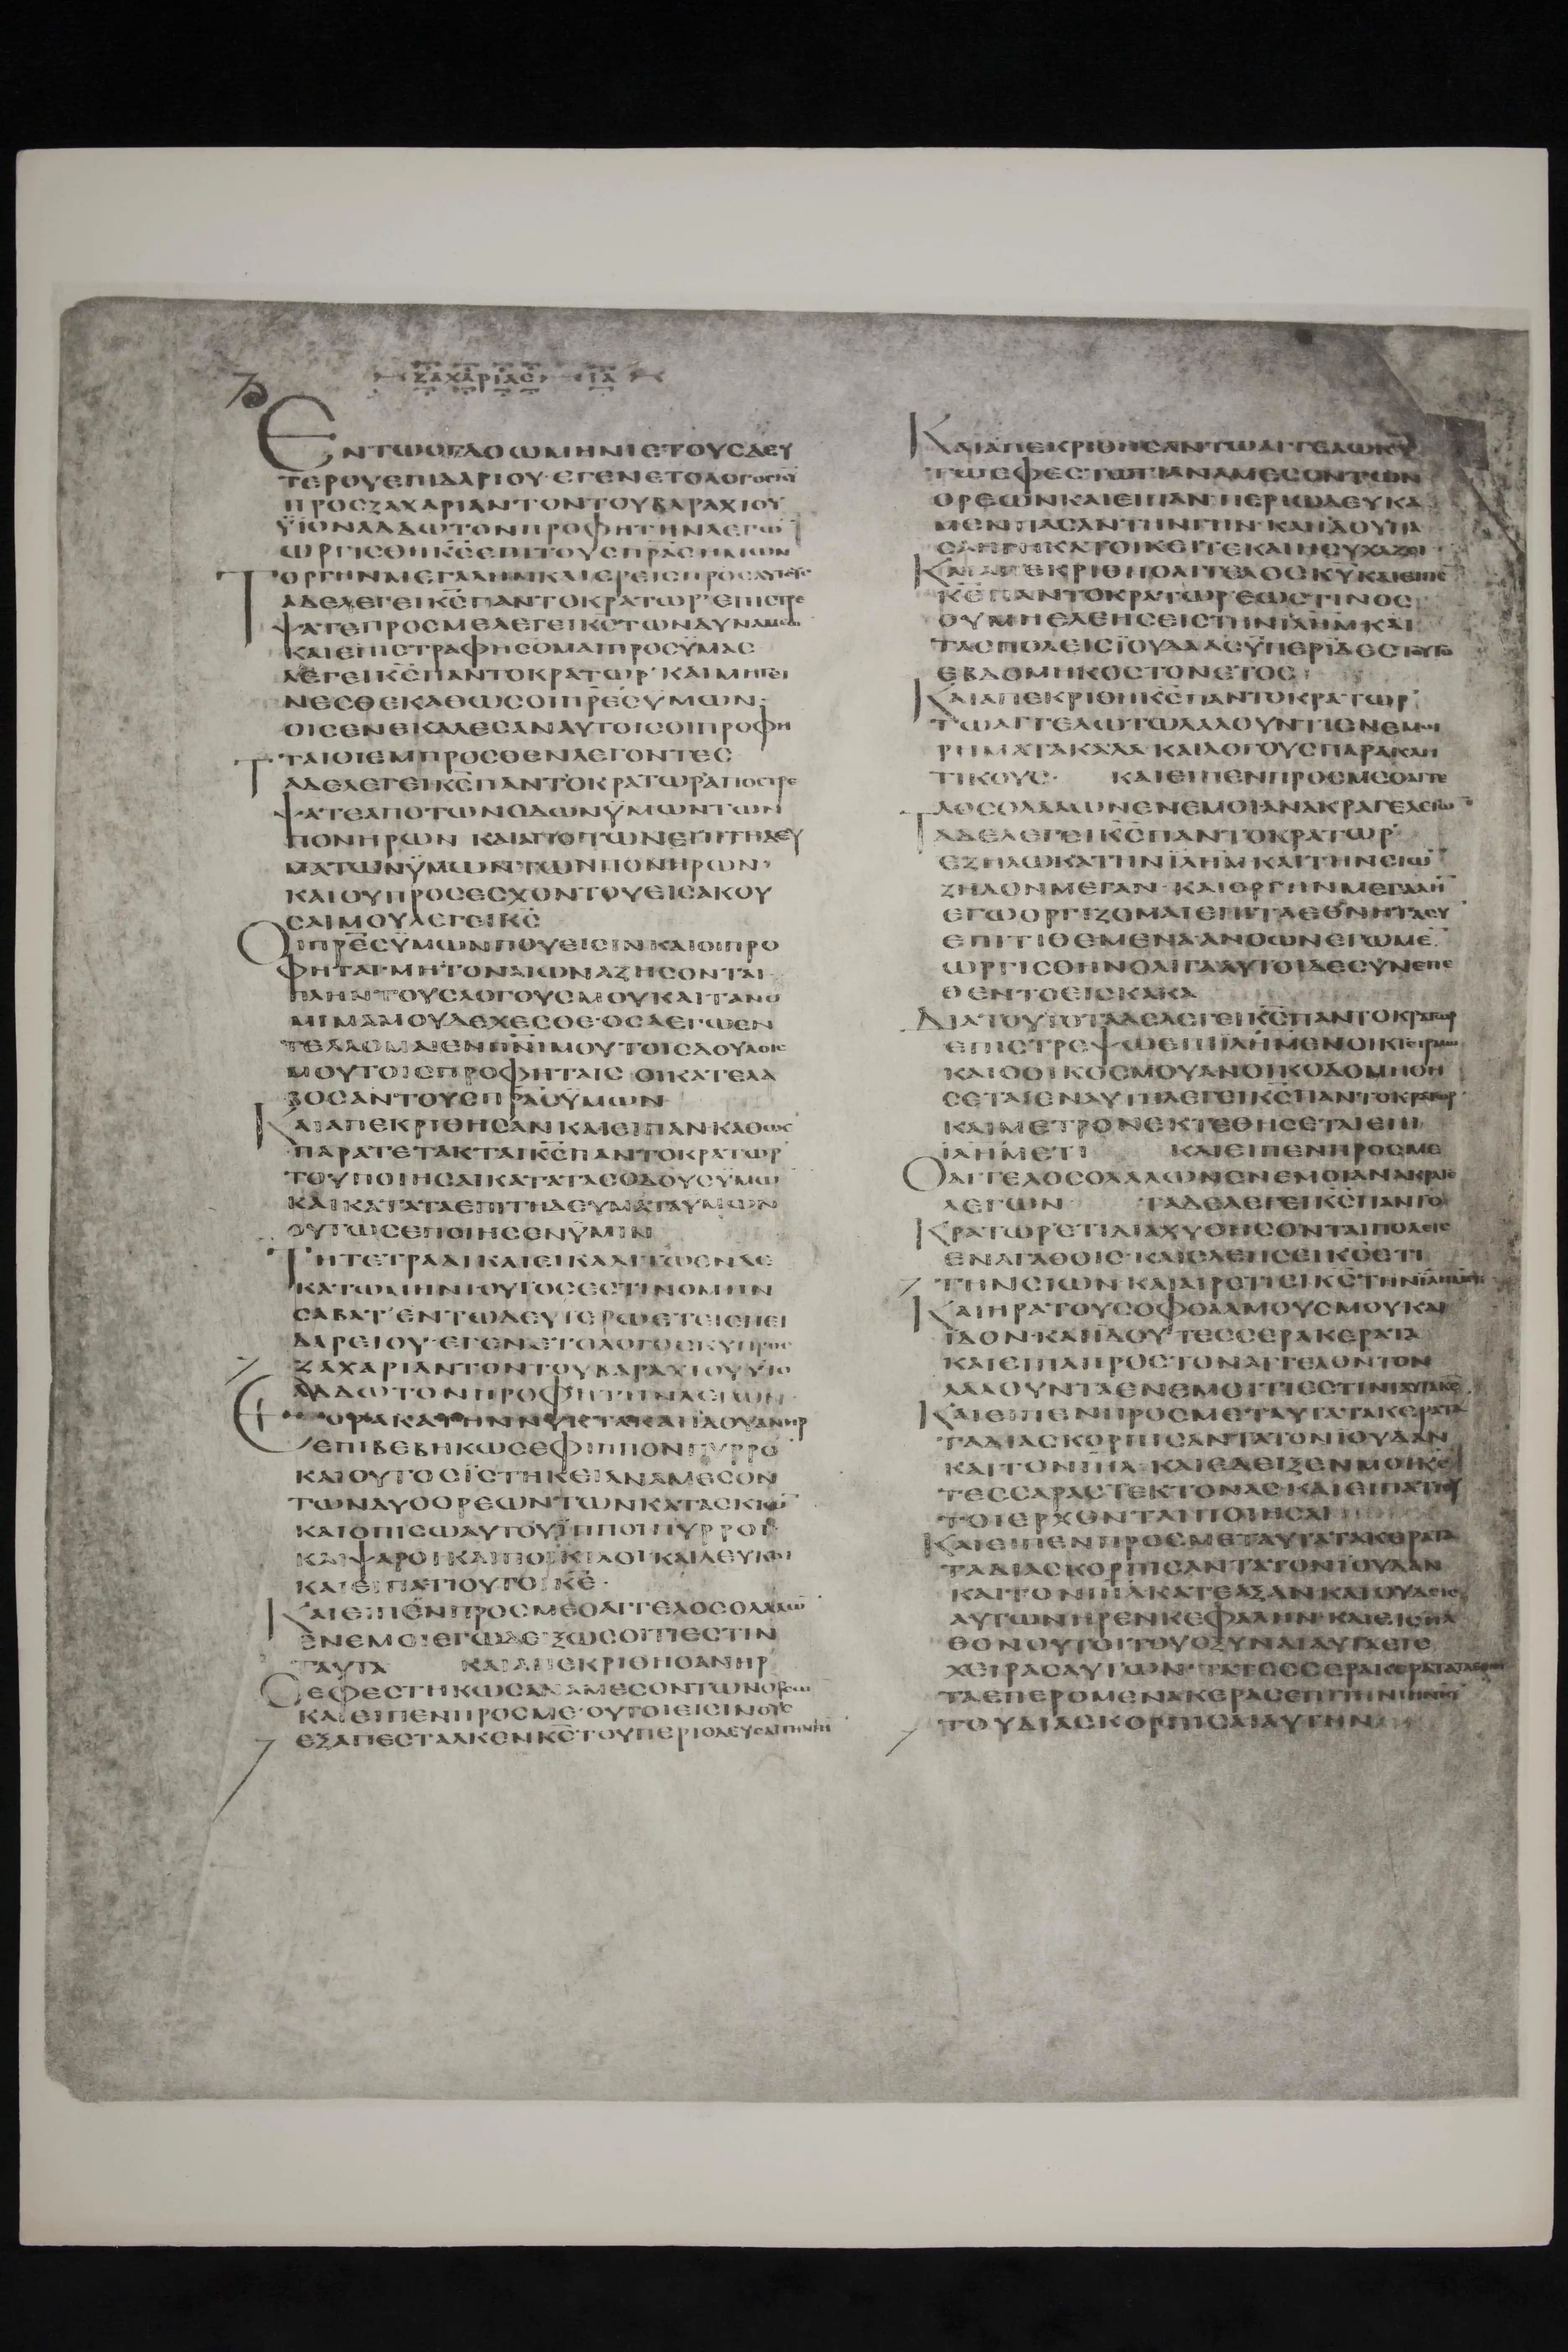 ΖΑΧΑΡΙΑΣ ΙΑ
ΕΝΤΩΟΓΔΟΩΜΗΝΙΕΤΟΥΣΔΕΥ
ΤΕΡΟΥΕΠΙΔΑΡΙΟΥ·ΕΓΕΝΕΤΟΛΟΓΟΣΚ͞Υ
ΠΡΟΣΖΑΧΑΡΙΑΝΤΟΝΤΟΥΒΑΡΑΧΙΟΥ
ΫΙΟΝΑΔΔΩΤΟΝΠΡΟΦΗΤΗΝΛΕΓΩ͞
ΩΡΓΙΣΘΗΚ͞ΣΕΠΙΤΟΥΣΠ͞ΡΑΣΗΜΩΝ
ΟΡΓΗΝΜΕΓΑΛΗΝΚΑΙΕΡΕΙΣΠΡΟΣΑΥΤΟΥΣ
ΤΑΔΕΛΕΓΕΙΚ͞ΣΠΑΝΤΟΚΡΑΤΩΡ·ΕΠΙΣΤΡΕ
ΨΑΤΕΠΡΟΣΜΕΛΕΓΕΙΚ͞ΣΤΩΝΔΥΝΑΜΕΩ͞
ΚΑΙΕΠΙΣΤΡΑΦΗΣΟΜΑΙΠΡΟΣΫΜΑΣ
ΛΕΓΕΙΚ͞ΣΠΑΝΤΟΚΡΑΤΩΡ·ΚΑΙΜΗΓΕΙ
ΝΕΣΘΕΚΑΘΩΣΟΙΠ͞ΡΕΣΫΜΩΝ·
ΟΙΣΕΝΕΚΑΛΕΣΑΝΑΥΤΟΙΣΟΙΠΡΟΦΗ
ΤΑΙΟΙΕΜΠΡΟΣΘΕΝΛΕΓΟΝΤΕΣ
ΤΑΔΕΛΕΓΕΙΚ͞ΣΠΑΝΤΟΚΡΑΤΩΡΑΠΟΣΤΡΕ
ΨΑΤΕΑΠΟΤΩΝΟΔΩΝΫΜΩΝΤΩΝ
ΠΟΝΗΡΩΝ ΚΑΙΑΠΟΤΩΝΕΠΙΤΗΔΕΥ
ΜΑΤΩΝΫΜΩΝΤΩΝΠΟΝΗΡΩΝ·
ΚΑΙΟΥΠΡΟΣΕΣΧΟΝΤΟΥΕΙΣΑΚΟΥ
ΣΑΙΜΟΥΛΕΓΕΙΚ͞Σ
ΟΙΠ͞ΡΕΣΫΜΩΝΠΟΥΕΙΣΙΝΚΑΙΟΙΠΡΟ
ΦΗΤΑΙ·ΜΗΤΟΝΑΙΩΝΑΖΗΣΟΝΤΑΙ·
ΠΛΗΝΤΟΥΣΛΟΓΟΥΣΜΟΥΚΑΙΤΑΝΟ
ΜΙΜΑΜΟΥΔΕΧΕΣΘΕ·ΟΣΑΕΓΩΕΝ
ΤΕΛΛΟΜΑΙΕΝΠ͞ΝΙΜΟΥΤΟΙΣΔΟΥΛΟΙΣ
ΜΟΥΤΟΙΣΠΡΟΦΗΤΑΙΣ ΟΙΚΑΤΕΛΑ
ΒΟΣΑΝΤΟΥΣΠ͞ΡΑΣΫΜΩΝ
ΚΑΙΑΠΕΚΡΙΘΗΣΑΝΚΑΙΕΙΠΑΝ·ΚΑΘΩΣ
ΠΑΡΑΤΕΤΑΚΤΑΙΚ͞ΣΠΑΝΤΟΚΡΑΤΩΡ
ΤΟΥΠΟΙΗΣΑΙΚΑΤΑΤΑΣΟΔΟΥΣΫΜΩ͞
ΚΑΙΚΑΤΑΤΑΕΠΙΤΗΔΕΥΜΑΤΑΫΜΩΝ
ΟΥΤΩΣΕΠΟΙΗΣΕΝΫΜΙΝ
ΤΗΤΕΤΡΑΔΙΚΑΙΕΙΚΑΔΙΤΩΕΝΔΕ
ΚΑΤΩΜΗΝΙΟΥΤΟΣΕΣΤΙΝΟΜΗΝ
ΣΑΒΑΤ·ΕΝΤΩΔΕΥΤΕΡΩΕΤΕΙΕΠΕΙ
ΔΑΡΕΙΟΥ·ΕΓΕΝΕΤΟΛΟΓΟΣΚ͞ΥΠΡΟΣ
ΖΑΧΑΡΙΑΝΤΟΝΤΟΥΒΑΡΑΧΙΟΥΫΙΟ͞
ΑΔΔΩΤΟΝΠΡΟΦΗΤΗΝΛΕΓΩΝ
ΕΟΡΑΚΑΤΗΝΝΥΚΤΑΚΑΙΪΔΟΥΑΝΗΡ
ΕΠΙΒΕΒΗΚΩΣΕΦΙΠΠΟΝΠΥΡΡΟ͞
ΚΑΙΟΥΤΟΣΪΣΤΗΚΕΙΑΝΑΜΕΣΟΝ
ΤΩΝΔΥΟΟΡΕΩΝΤΩΝΚΑΤΑΣΚΙΩ͞
ΚΑΙΟΠΙΣΩΑΥΤΟΥΪΠΠΟΙΠΥΡΡΟΙ·
ΚΑΙΨΑΡΟΙΚΑΙΠΟΙΚΙΛΟΙΚΑΙΛΕΥΚΟΙ
ΚΑΙΕΙΠΑΤΙΟΥΤΟΙΚ͞Ε·
ΚΑΙΕΙΠΕΝΠΡΟΣΜΕΟΑΓΓΕΛΟΣΟΛΑΛΩ͞
ΕΝΕΜΟΙΕΓΩΔΕΙΞΩΣΟΙΤΙΕΣΤΙΝ
ΤΑΥΤΑ ΚΑΙΑΠΕΚΡΙΘΗΟΑΝΗΡ
ΟΕΦΕΣΤΗΚΩΣΑΝΑΜΕΣΟΝΤΩΝΟΡΕΩ͞
ΚΑΙΕΙΠΕΝΠΡΟΣΜΕ·ΟΥΤΟΙΕΙΣΙΝΟΥΣ
ΕΞΑΠΕΣΤΑΛΚΕΝΚ͞ΣΤΟΥΠΕΡΙΟΔΕΥΣΑΙΤΗΝΓΗ͞
ΚΑΙΑΠΕΚΡΙΘΗΣΑΝΤΩΑΓΓΕΛΩΚ͞Υ
ΤΩΕΦΕΣΤΩΤΙΑΝΑΜΕΣΟΝΤΩΝ
ΟΡΕΩΝΚΑΙΕΙΠΑΝ·ΠΕΡΙΩΔΕΥΚΑ
ΜΕΝΠΑΣΑΝΤΗΝΓΗΝ·ΚΑΙΪΔΟΥΠΑ
ΣΑΗΓΗΚΑΤΟΙΚΕΙΤΕΚΑΙΗΣΥΧΑΖΕΙ
ΚΑΙΑΠΕΚΡΙΘΗΟΑΓΓΕΛΟΣΚ͞ΥΚΑΙΕΙΠΕ
Κ͞ΕΠΑΝΤΟΚΡΑΤΩΡ·ΕΩΣΤΙΝΟΣ
ΟΥΜΗΕΛΕΗΣΕΙΣΤΗΝΪ͞ΛΗΜΚΑΙ
ΤΑΣΠΟΛΕΙΣΪΟΥΔΑΑΣΫΠΕΡΙΔΕΣΤΟΥΤΟ
ΕΒΔΟΜΗΚΟΣΤΟΝΕΤΟΣ
ΚΑΙΑΠΕΚΡΙΘΗΚ͞ΣΠΑΝΤΟΚΡΑΤΩΡ
ΤΩΑΓΓΕΛΩΤΩΛΑΛΟΥΝΤΙΕΝΕΜΟΙ
ΡΗΜΑΤΑΚΑΛΑ·ΚΑΙΛΟΓΟΥΣΠΑΡΑΚΛΗ
ΤΙΚΟΥΣ· ΚΑΙΕΙΠΕΝΠΡΟΣΜΕΟΑΓΓΕ
ΛΟΣΟΛΑΛΩΝΕΝΕΜΟΙΑΝΑΚΡΑΓΕΛΕΓΩ͞
ΤΑΔΕΛΕΓΕΙΚ͞ΣΠΑΝΤΟΚΡΑΤΩΡ
ΕΖΗΛΩΚΑΤΗΝΪ͞ΛΗΜΚΑΙΤΗΝΣΙΩ͞
ΖΗΛΟΝΜΕΓΑΝ·ΚΑΙΟΡΓΗΝΜΕΓΑΛΗ͞
ΕΓΩΟΡΓΙΖΟΜΑΙΕΠΙΤΑΕΘΝΗΤΑΣΥ
ΕΠΙΤΙΘΕΜΕΝΑ·ΑΝΘΩΝΕΓΩΜΕ͞
ΩΡΓΙΣΘΗΝΟΛΙΓΑΑΥΤΟΙΔΕΣΥΝΕΠΕ
ΘΕΝΤΟΕΙΣΚΑΚΑ
ΔΙΑΤΟΥΤΟΤΑΔΕΛΕΓΕΙΚ͞ΣΠΑΝΤΟΚΡΑΤΩΡ
ΕΠΙΣΤΡΕΨΩΕΠΙΪ͞ΛΗΜΕΝΟΙΚΤΕΙΡΜΩ
ΚΑΙΟΟΙΚΟΣΜΟΥΑΝΟΙΚΟΔΟΜΗΘΗ
ΣΕΤΑΙΕΝΑΥΤΗΛΕΓΕΙΚ͞ΣΠΑΝΤΟΚΡΑΤΩΡ
ΚΑΙΜΕΤΡΟΝΕΚΤΕΘΗΣΕΤΑΙΕΠΙ
Ϊ͞ΛΗΜΕΤΙ ΚΑΙΕΙΠΕΝΠΡΟΣΜΕ
ΟΑΓΓΕΛΟΣΟΛΑΛΩΝΕΝΕΜΟΙΑΝΑΚΡΑΓΕ
ΛΕΓΩΝ ΤΑΔΕΛΕΓΕΙΚ͞ΣΠΑΝΤΟ
ΚΡΑΤΩΡ·ΕΤΙΔΙΑΧΥΘΗΣΟΝΤΑΙΠΟΛΕΙΣ
ΕΝΑΓΑΘΟΙΣ·ΚΑΙΕΛΕΗΣΕΙΚ͞ΣΕΤΙ
ΤΗΝΣΙΩΝ·ΚΑΙΑΙΡΕΤΙΕΙΚ͞ΣΤΗΝΪ͞ΛΗΜ
ΚΑΙΗΡΑΤΟΥΣΟΦΘΑΛΜΟΥΣΜΟΥΚΑΙ
ΪΔΟΝ·ΚΑΙΪΔΟΥΤΕΣΣΕΡΑΚΕΡΑΤΑ
ΚΑΙΕΙΠΑΠΡΟΣΤΟΝΑΓΓΕΛΟΝΤΟΝ
ΛΑΛΟΥΝΤΑΕΝΕΜΟΙΤΙΕΣΤΙΝΤΑΥΤΑΚ͞Ε
ΚΑΙΕΙΠΕΝΠΡΟΣΜΕΤΑΥΤΑΤΑΚΕΡΑΤΑ
ΤΑΔΙΑΣΚΟΡΠΙΣΑΝΤΑΤΟΝΪΟΥΔΑΝ
ΚΑΙΤΟΝΙ͞ΗΛ·ΚΑΙΕΔΕΙΞΕΝΜΟΙΚ͞Σ
ΤΕΣΣΑΡΑΣΤΕΚΤΟΝΑΣ·ΚΑΙΕΙΠΑΤΙΟΥ
ΤΟΙΕΡΧΟΝΤΑΙΠΟΙΗΣΑΙ
ΚΑΙΕΙΠΕΝΠΡΟΣΜΕΤΑΥΤΑΤΑΚΕΡΑΤΑ
ΤΑΔΙΑΣΚΟΡΠΙΣΑΝΤΑΤΟΝΪΟΥΔΑΝ
ΚΑΙΤΟΝΙ͞ΗΛΚΑΤΕΑΞΑΝ·ΚΑΙΟΥΔΕΙΣ
ΑΥΤΩΝΗΡΕΝΚΕΦΑΛΗΝ·ΚΑΙΕΙΣΗΛ
ΘΟΝΟΥΤΟΙΤΟΥΟΞΥΝΑΙΑΥΤΑΕΙΣ
ΧΕΙΡΑΣΑΥΤΩΝ·ΤΑΤΕΣΣΕΡΑΚΕΡΑΤΑ
ΤΑΕΠΕΡΟΜΕΝΑΚΕΡΑΣΕΠΙΤΗΝΓΗΝΚ͞Υ
ΤΟΥΔΙΑΣΚΟΡΠΙΣΑΙΑΥΤΗΝ